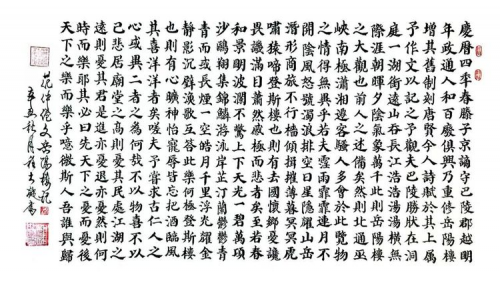 慶曆四年春滕子京謫守巴陵郡越明
年政通人和百廢俱興乃重修岳陽樓
增其舊制刻唐賢今人詩賦於其上屬
予作文以記之予觀夫巴陵勝狀在洞
庭一湖銜遠山吞長江浩浩湯湯橫無
際涯朝暉夕陰氣象萬千此則岳陽樓
之大觀也前人之述備矣然則北通巫
峽南極瀟湘遷客騷人多會於此覽物
之情得無異乎若夫霪雨霏霏連月不
開陰風怒號濁浪排空日星隱曜山岳
潛形商旅不行檣傾楫摧薄暮冥冥虎
嘯猿啼登斯樓也則有去國懷鄉憂讒
畏譏滿目蕭然感極而悲者矣至若春
和景明波瀾不驚上下天光一碧萬頃
沙鷗翔集錦鱗游泳岸芷汀蘭鬱鬱青
青而或長煙一空皓月千里浮光耀金
靜影沉璧漁歌互答此樂何極登斯樓
也則有心曠神怡寵辱皆忘把酒臨風
其喜洋洋者矣嗟夫予嘗求古仁人之
心或異二者之為何哉不以物喜不以
己悲居廟堂之高則憂其民處江湖之
遠則憂其君是進亦憂退亦憂然則何
時而樂耶其必曰先天下之憂而憂後
天下之樂而樂乎噫微斯人吾誰與歸
范仲淹文岳陽樓記
辛丑秋月 書